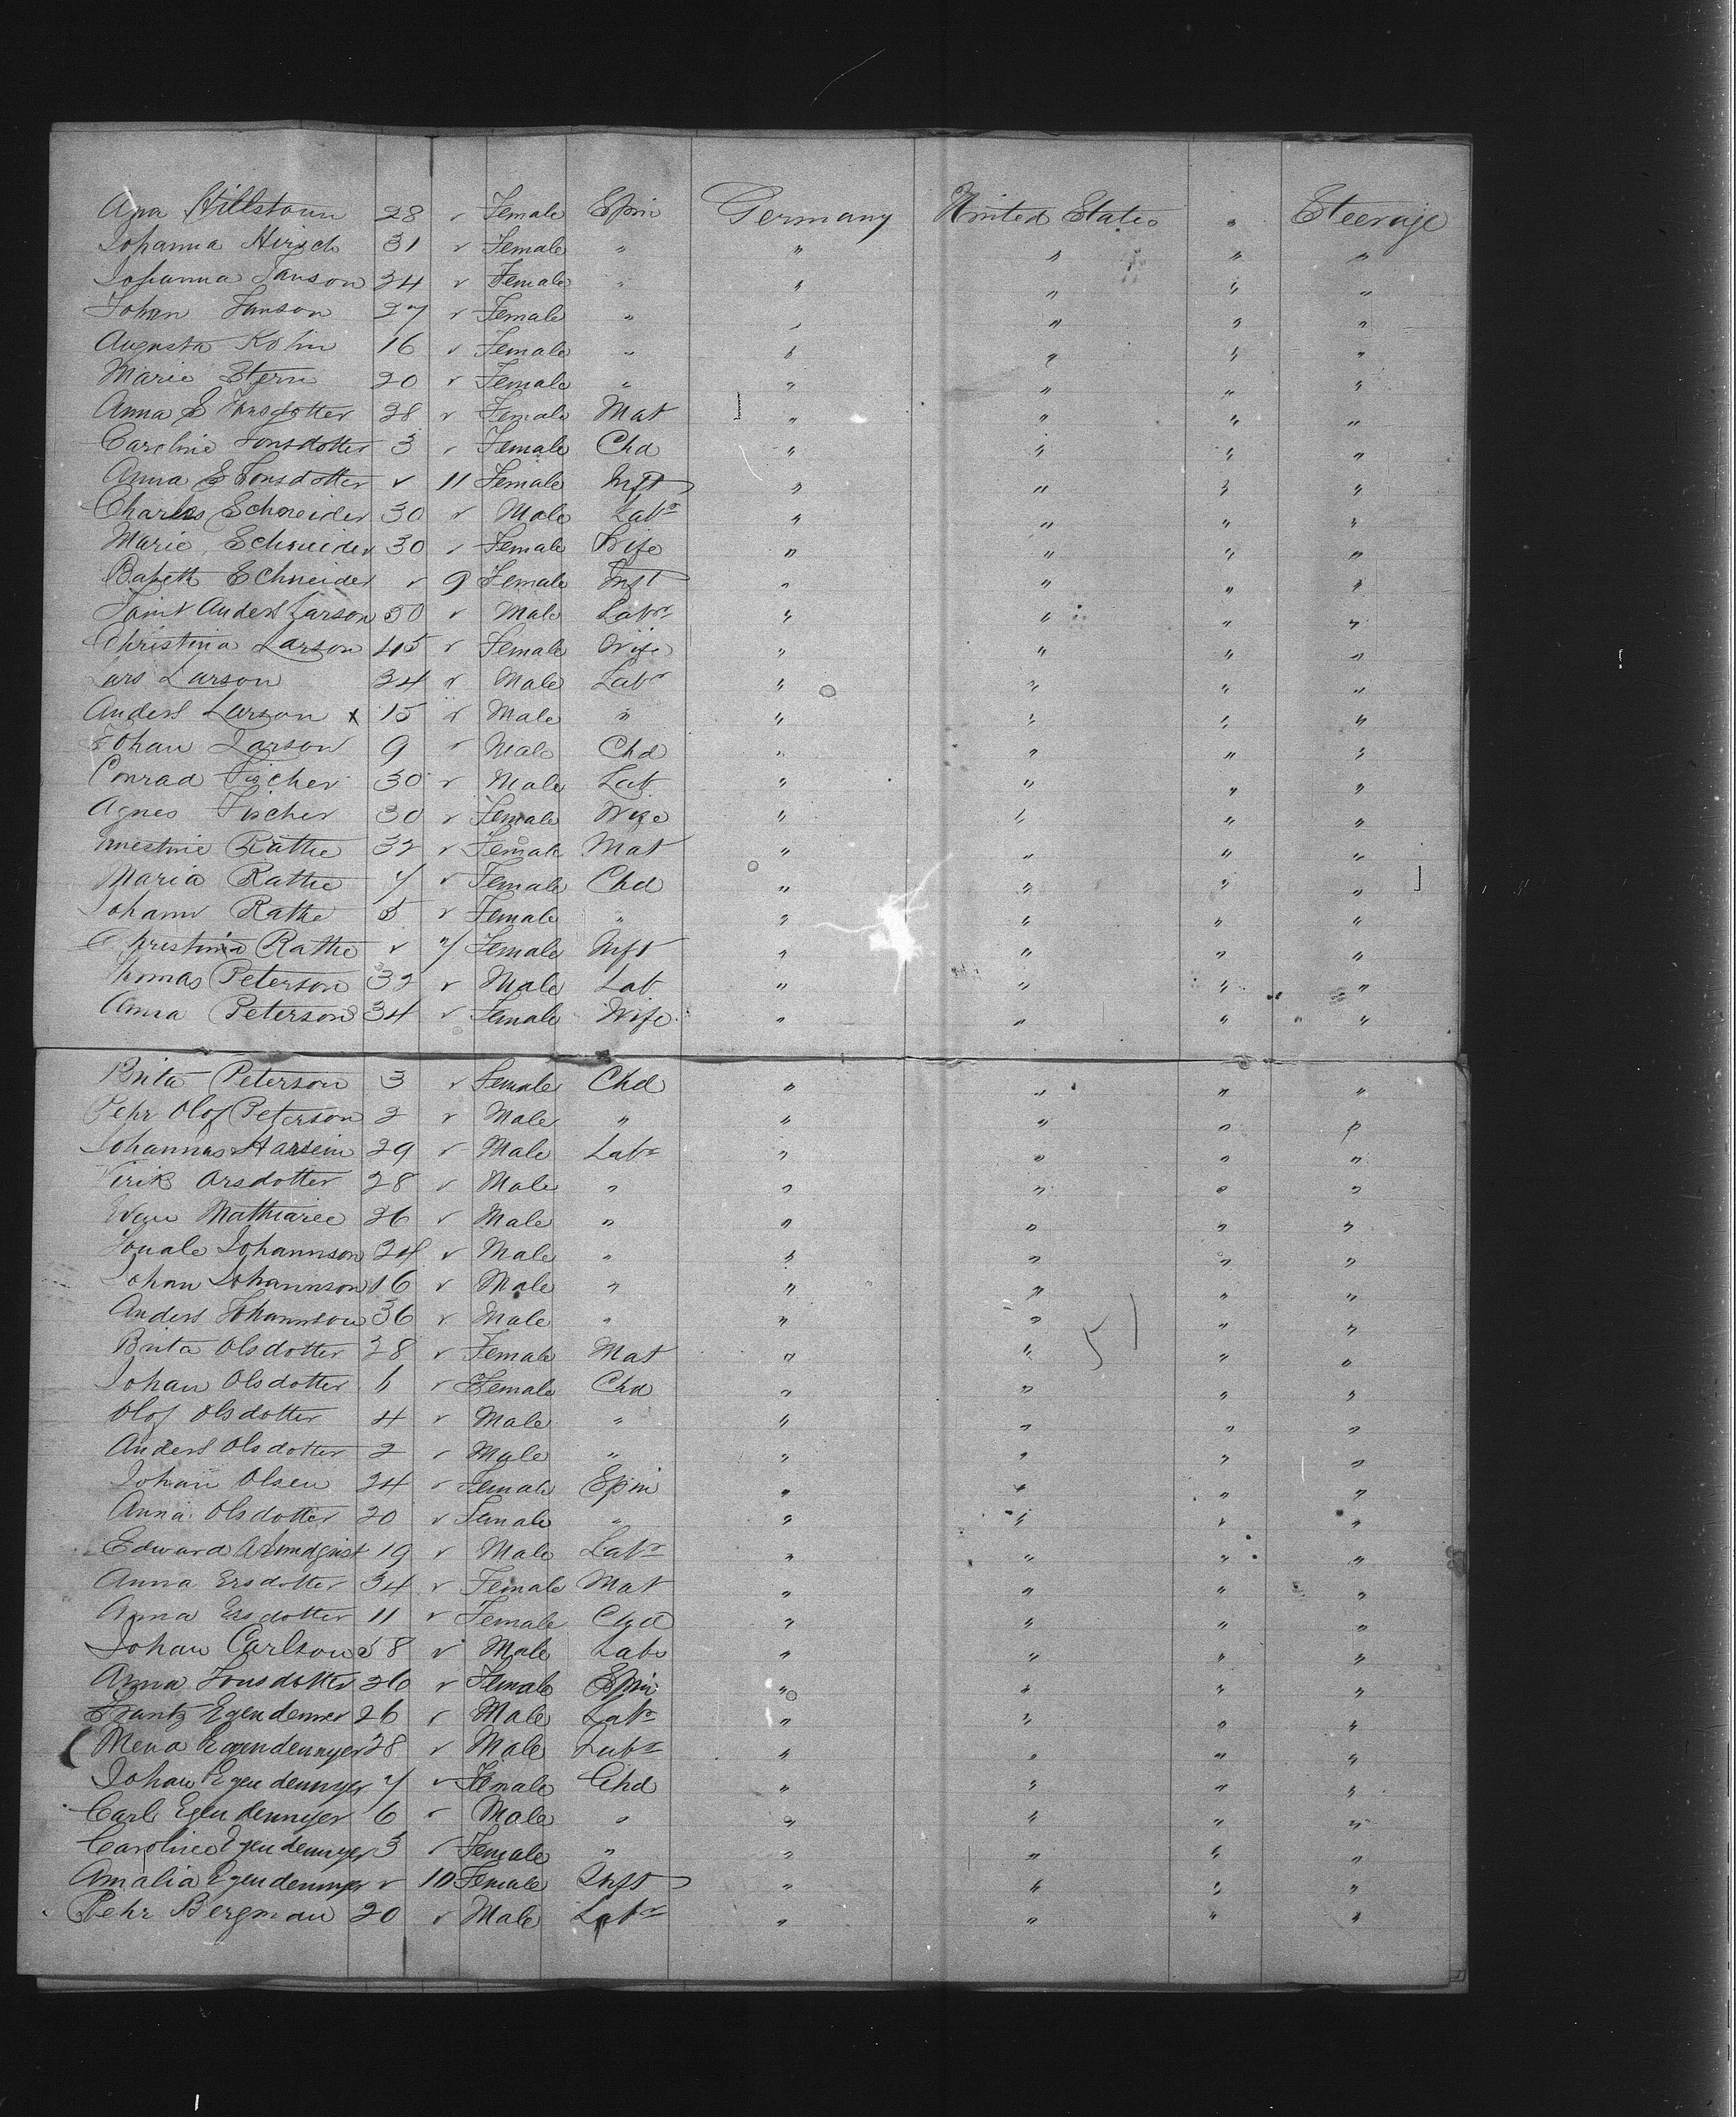 Ana Hillstoun 28 ✓ Female Spin Germany United States " Steerage
Johanna Hirsch 31 ✓ Female " " " " "
Johanna Janson 24 ✓ Female " " " " "
Johan Janson 27 ✓ Female " " " " "
Augusta Kohn 16 ✓ Female " " " " "
Marie Stern 20 ✓ Female " " " " "
Anna E Jonsdotter 28 ✓ Female Mat " " " "
Caroline Jonsdotter 3 ✓ Female Chd " " " "
Anna E Jonsdotter ✓ 11 Female Inft " " " "
Charles Schneider 30 ✓ Male Labr " " " "
Marie Schneider 30 ✓ Female Wife " " " "
Babeth Schneider ✓ 9 Female Inft " " " "
Anders Larson 50 ✓ Male Labr " " " "
Christina Larson 45 ✓ Female Wife " " " "
Lars Larson 24 ✓ Male Labr " " " "
Anders Larson x 15 ✓ Male " " " " "
Johan Larson 9 ✓ Male Chd " " " "
Conrad Fischer 30 ✓ Male Lab " " " "
Agnes Fischer 30 ✓ Female Wife " " " "
Rathe 32 ✓ Female Mat " " " "
Maria Rathe 7 ✓ Female Chd " " " "
Johann Rathe 5 ✓ Female " " " " "
Christina Rathe ✓ 7 Female Inft " " " "
Thomas Peterson 32 ✓ Male Lab " " " "
Anna Peterson 34 ✓ Female Wife " " " "
Brita Peterson 3 ✓ Female Chd " " " "
Pehr Olof Peterson 2 ✓ Male " " " " "
Johannas 29 ✓ Male Labr " " " "
Erik Orsdotter 28 ✓ Male " " " " "
Mathiaree 26 ✓ Male " " " " "
Johannson 24 ✓ Male " " " " "
Johan Johannson 16 ✓ Male " " " " "
Anders Johannson 36 ✓ Male " " " " "
Brita Olsdotter 28 ✓ Female Mat " " " "
Johan Olsdotter 6 ✓ Female Chd " " " "
Olof Olsdotter 4 ✓ Male " " " " "
Anders Olsdotter 2 ✓ Male " " " " "
Johan Olsen 24 ✓ Female Spin " " " "
Anna Olsdotter 20 ✓ Female " " " " "
Edward 19 ✓ Male Labr " " " "
Anna Ersdotter 34 ✓ Female Mat " " " "
Anna Ersdotter 11 ✓ Female Chd " " " "
Johan Carlson 58 ✓ Male Labr " " " "
Anna Jonsdotter 26 ✓ Female Spin " " " "
Frantz Egendenner 26 ✓ Male Labr " " " "
Mena Egendennyer 28 ✓ Male Labr " " " "
Johan Egendennyer 7 ✓ Female Chd " " " "
Carl Egendennyer 6 ✓ Male " " " " "
Caroline Egendennyer 3 ✓ Female " " " " "
Amalia Egendennyer ✓ 10 Female Inft " " " "
Pehr Bergman 20 ✓ Male Labr " " " "